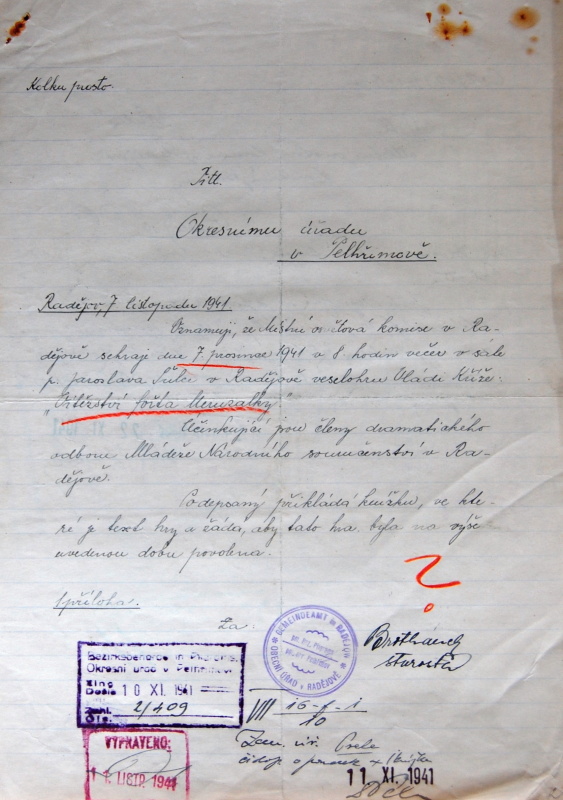 Kolku prosto.
Titl.
Okresnímu úřadu
v Pelhřimově.
Radějov, 7 listopadu 1941.
Oznamuji, že Místní osvětová komise v Ra-
dějově sehraje dne 7. prosince 1941 v 8. hodin večer v sále
p. Jaroslava Šulce v Radějově veselohru Vládi
"Vítězství
Účinkující jsou členy dramatického
odboru Mládeže Národního souručenství v Ra-
dějově.
Podepsaný přikládá knížku, ve kte-
ré je text hry a žádá, aby tato hra byla na výše
uvedenou dobu povolena.
?
1 příloha.
Za:
GEMEINDEAMT in RADĚJOV
OBECNÍ ÚŘAD v RADĚJOVĚ
starosta
Bezirksbehörde in
Okresní úřad v Pelhřimově
Eing.
Došlo 10 XI. 1941
Zahl
Čís. 2/409
VIII 16-1-1
10
VYPRAVENO:
11. LISTP. 1941
11 XI. 1941